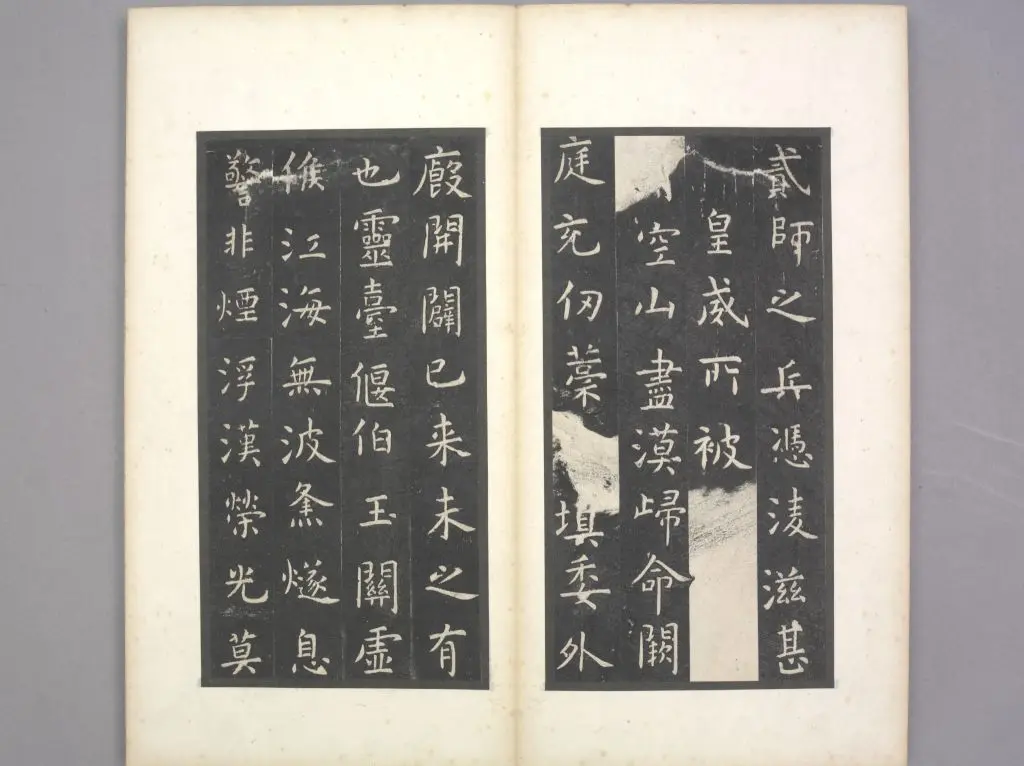 貳師之兵憑淩滋甚
皇威所被
空山盡漠歸命闕
庭充仞藁填委外
廄開闢已来未之有
也靈臺偃伯玉關虛
候江海無波㷭燧息
警非煙浮漢榮光莫